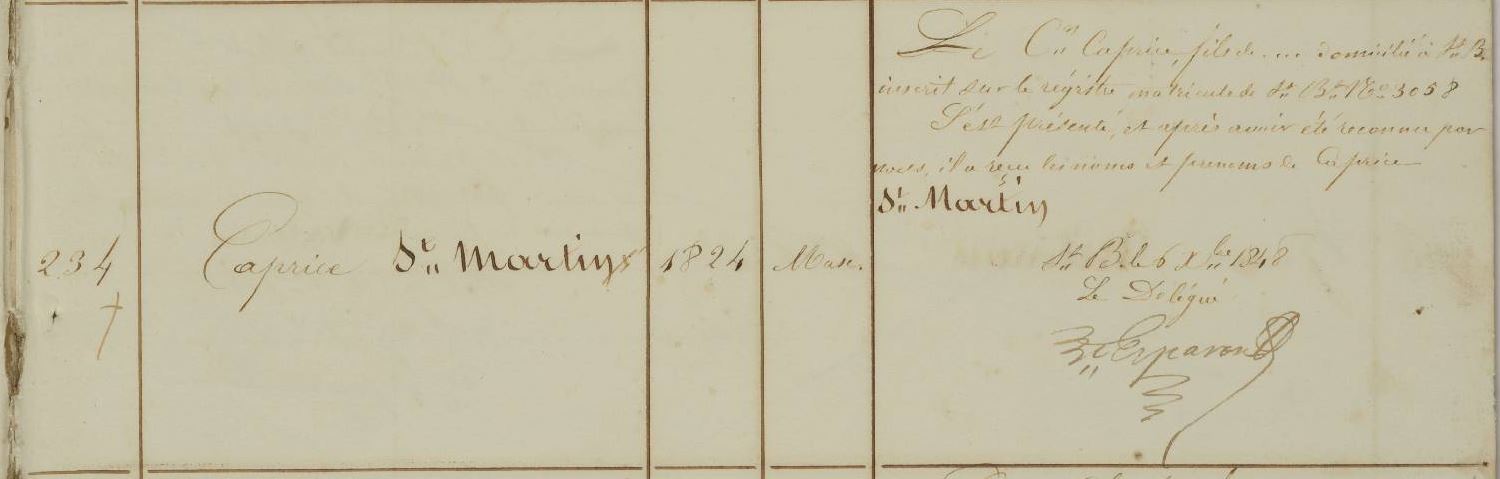 234
Caprice St. Martin
1824
Masc.
Le Cen Caprice, fils de .... domicilié à St. B.
inscrit sur le régistre matricule de St. Bt. No. 3058
S'est présenté, et après avoir été reconnu par
nous, il a reçu les noms et prénoms de Caprice
St. Martin
St. B. le 6 Xbre 1848
Le Délégué